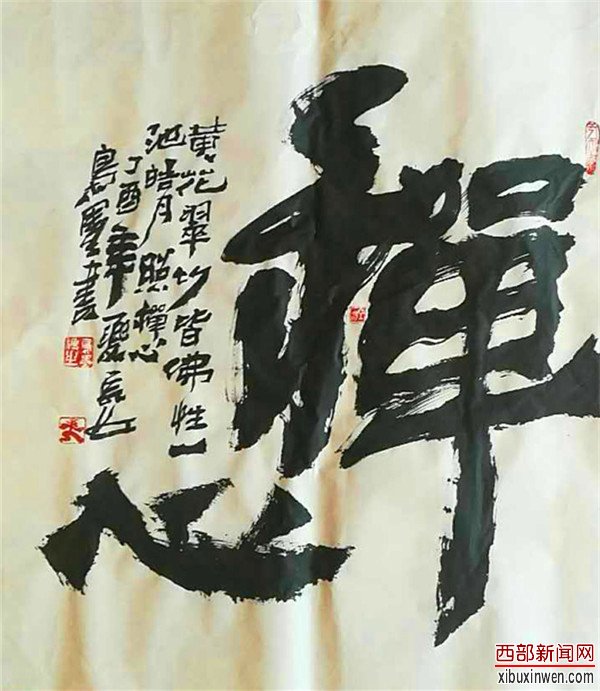 禪
心
黄花翠竹皆佛性一
池皓月照禪心
丁酉年
墨書
西部新闻网
xibuxinwen.com